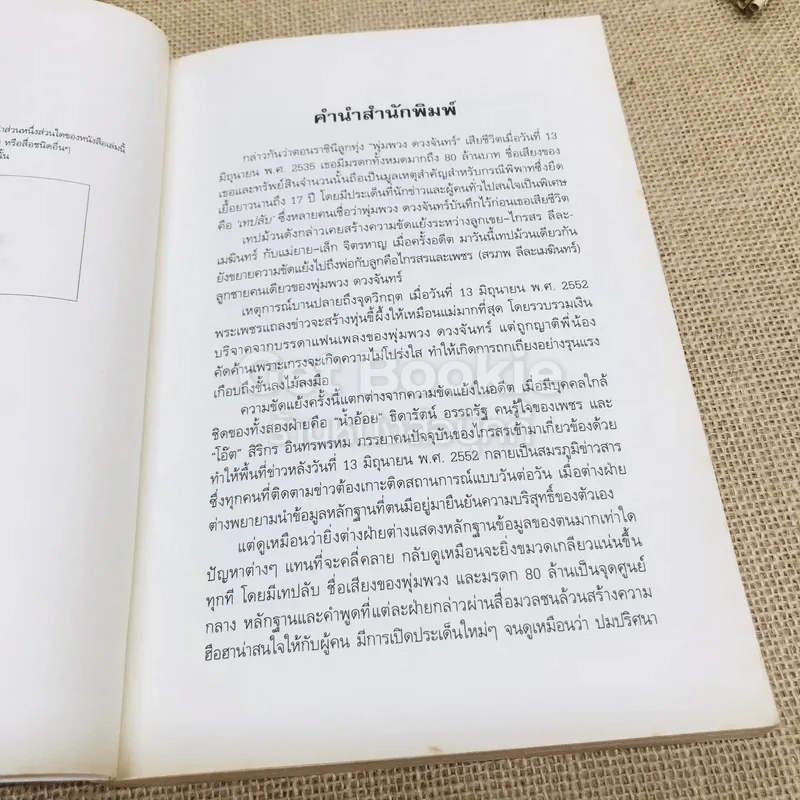 ส่วนหนึ่งส่วนใดของหนังสือเล่มนี้
หรือสื่อชนิดอื่นๆ
คำนำสำนักพิมพ์
กล่าวกันว่าตอนราชินีลูกทุ่ง "พุ่มพวง ดวงจันทร์" เสียชีวิตเมื่อวันที่ 13
มิถุนายน พ.ศ. 2535 เธอมีมรดกทั้งหมดมากถึง 80 ล้านบาท ชื่อเสียงของ
เธอและทรัพย์สินจำนวนนั้นถือเป็นมูลเหตุสำคัญสำหรับกรณีพิพาทซึ่งยืด
เยื้อยาวนานถึง 17 ปี โดยมีประเด็นที่นักข่าวและผู้คนทั่วไปสนใจเป็นพิเศษ
คือ 'เทปลับ' ซึ่งหลายคนเชื่อว่าพุ่มพวง ดวงจันทร์บันทึกไว้ก่อนเธอเสียชีวิต
เทปม้วนดังกล่าวเคยสร้างความขัดแย้งระหว่างลูกเขย-ไกรสร ลีละ-
เมฆินทร์ กับแม่ยาย-เล็ก จิตรหาญ เมื่อครั้งอดีต มาวันนี้เทปม้วนเดียวกัน
ยังขยายความขัดแย้งไปถึงพ่อกับลูกคือไกรสรและเพชร (สรภพ ลีละเมฆินทร์)
ลูกชายคนเดียวของพุ่มพวง ดวงจันทร์
เหตุการณ์บานปลายถึงจุดวิกฤต เมื่อวันที่ 13 มิถุนายน พ.ศ. 2552
พระเพชรแถลงข่าวจะสร้างหุ่นขี้ผึ้งให้เหมือนแม่มากที่สุด โดยรวบรวมเงิน
บริจาคจากบรรดาแฟนเพลงของพุ่มพวง ดวงจันทร์ แต่ถูกญาติพี่น้อง
คัดค้านเพราะเกรงจะเกิดความไม่โปร่งใส ทำให้เกิดการถกเถียงอย่างรุนแรง
เกือบถึงขั้นลงไม้ลงมือ
ความขัดแย้งครั้งนี้แตกต่างจากความขัดแย้งในอดีต เมื่อมีบุคคลใกล้
ชิดของทั้งสองฝ่ายคือ "น้ำอ้อย" ธิดารัตน์ อรรถรัฐ คนรู้ใจของเพชร และ
"โอ๊ต" สิริกร อินทรพรหม ภรรยาคนปัจจุบันของไกรสรเข้ามาเกี่ยวข้องด้วย
ทำให้พื้นที่ข่าวหลังวันที่ 13 มิถุนายน พ.ศ. 2552 กลายเป็นสมรภูมิข่าวสาร
ซึ่งทุกคนที่ติดตามข่าวต้องเกาะติดสถานการณ์แบบวันต่อวัน เมื่อต่างฝ่าย
ต่างพยายามนำข้อมูลหลักฐานที่ตนมีอยู่มายืนยันความบริสุทธิ์ของตัวเอง
แต่ดูเหมือนว่ายิ่งต่างฝ่ายต่างแสดงหลักฐานข้อมูลของตนมากเท่าใด
ปัญหาต่างๆ แทนที่จะคลี่คลาย กลับดูเหมือนจะยิ่งขมวดเกลียวแน่นขึ้น
ทุกที โดยมีเทปลับ ชื่อเสียงของพุ่มพวง และมรดก 80 ล้านเป็นจุดศูนย์
กลาง หลักฐานและคำพูดที่แต่ละฝ่ายกล่าวผ่านสื่อมวลชนล้วนสร้างความ
ฮือฮาน่าสนใจให้กับผู้คน มีการเปิดประเด็นใหม่ๆ จนดูเหมือนว่า ปมปริศนา
Get Bookie